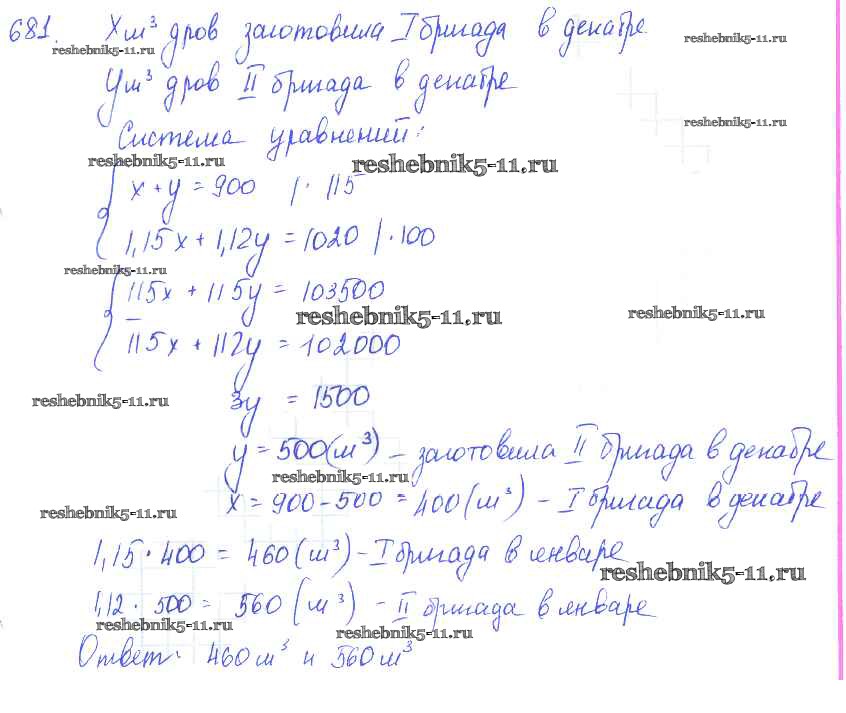 681. Xм³ дров заготовила I бригада в декабре.
reshebnik5-11.ru reshebnik5-11.ru
Yм³ дров II бригада в декабре
reshebnik5-11.ru
Система уравнений:
reshebnik5-11.ru reshebnik5-11.ru
x + y = 900 | · 115
1,15x + 1,12y = 1020 | · 100
reshebnik5-11.ru
115x + 115y = 103500
reshebnik5-11.ru reshebnik5-11.ru
115x + 112y = 102000
reshebnik5-11.ru 3y = 1500
y = 500(м³) – заготовила II бригада в декабре
reshebnik5-11.ru
x = 900 – 500 = 400(м³) – I бригада в декабре
reshebnik5-11.ru
1,15 · 400 = 460(м³) – I бригада в январе
reshebnik5-11.ru
1,12 · 500 = 560(м³) – II бригада в январе
reshebnik5-11.ru reshebnik5-11.ru
Ответ: 460м³ и 560м³